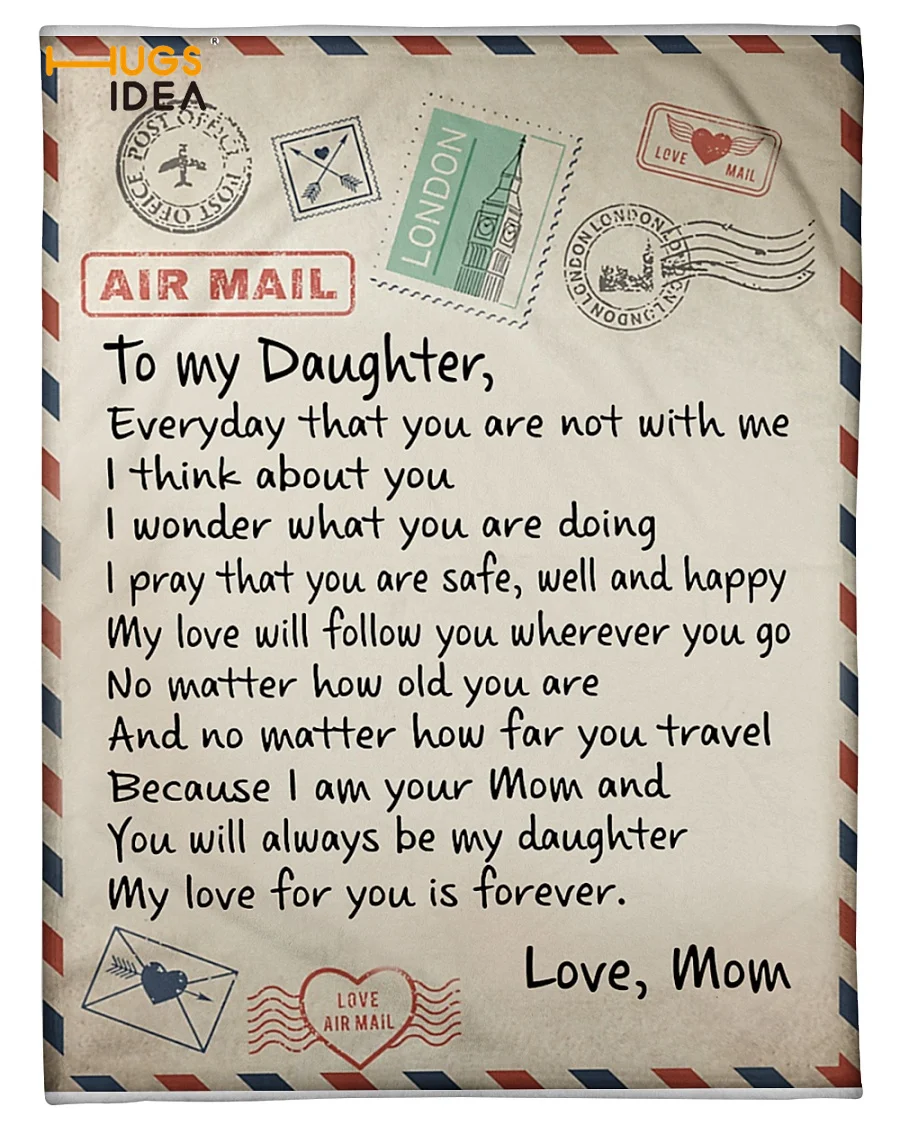 HUGS®
IDEA
POST OFFICE POST OFFICE
LONDON
LOVE MAIL
LONDON LONDON LONDON LONDON
AIR MAIL
To my Daughter,
Everyday that you are not with me
I think about you
I wonder what you are doing
I pray that you are safe, well and happy
My love will follow you wherever you go
No matter how old you are
And no matter how far you travel
Because I am your Mom and
You will always be my daughter
My love for you is forever.
Love, Mom
LOVE
AIR MAIL